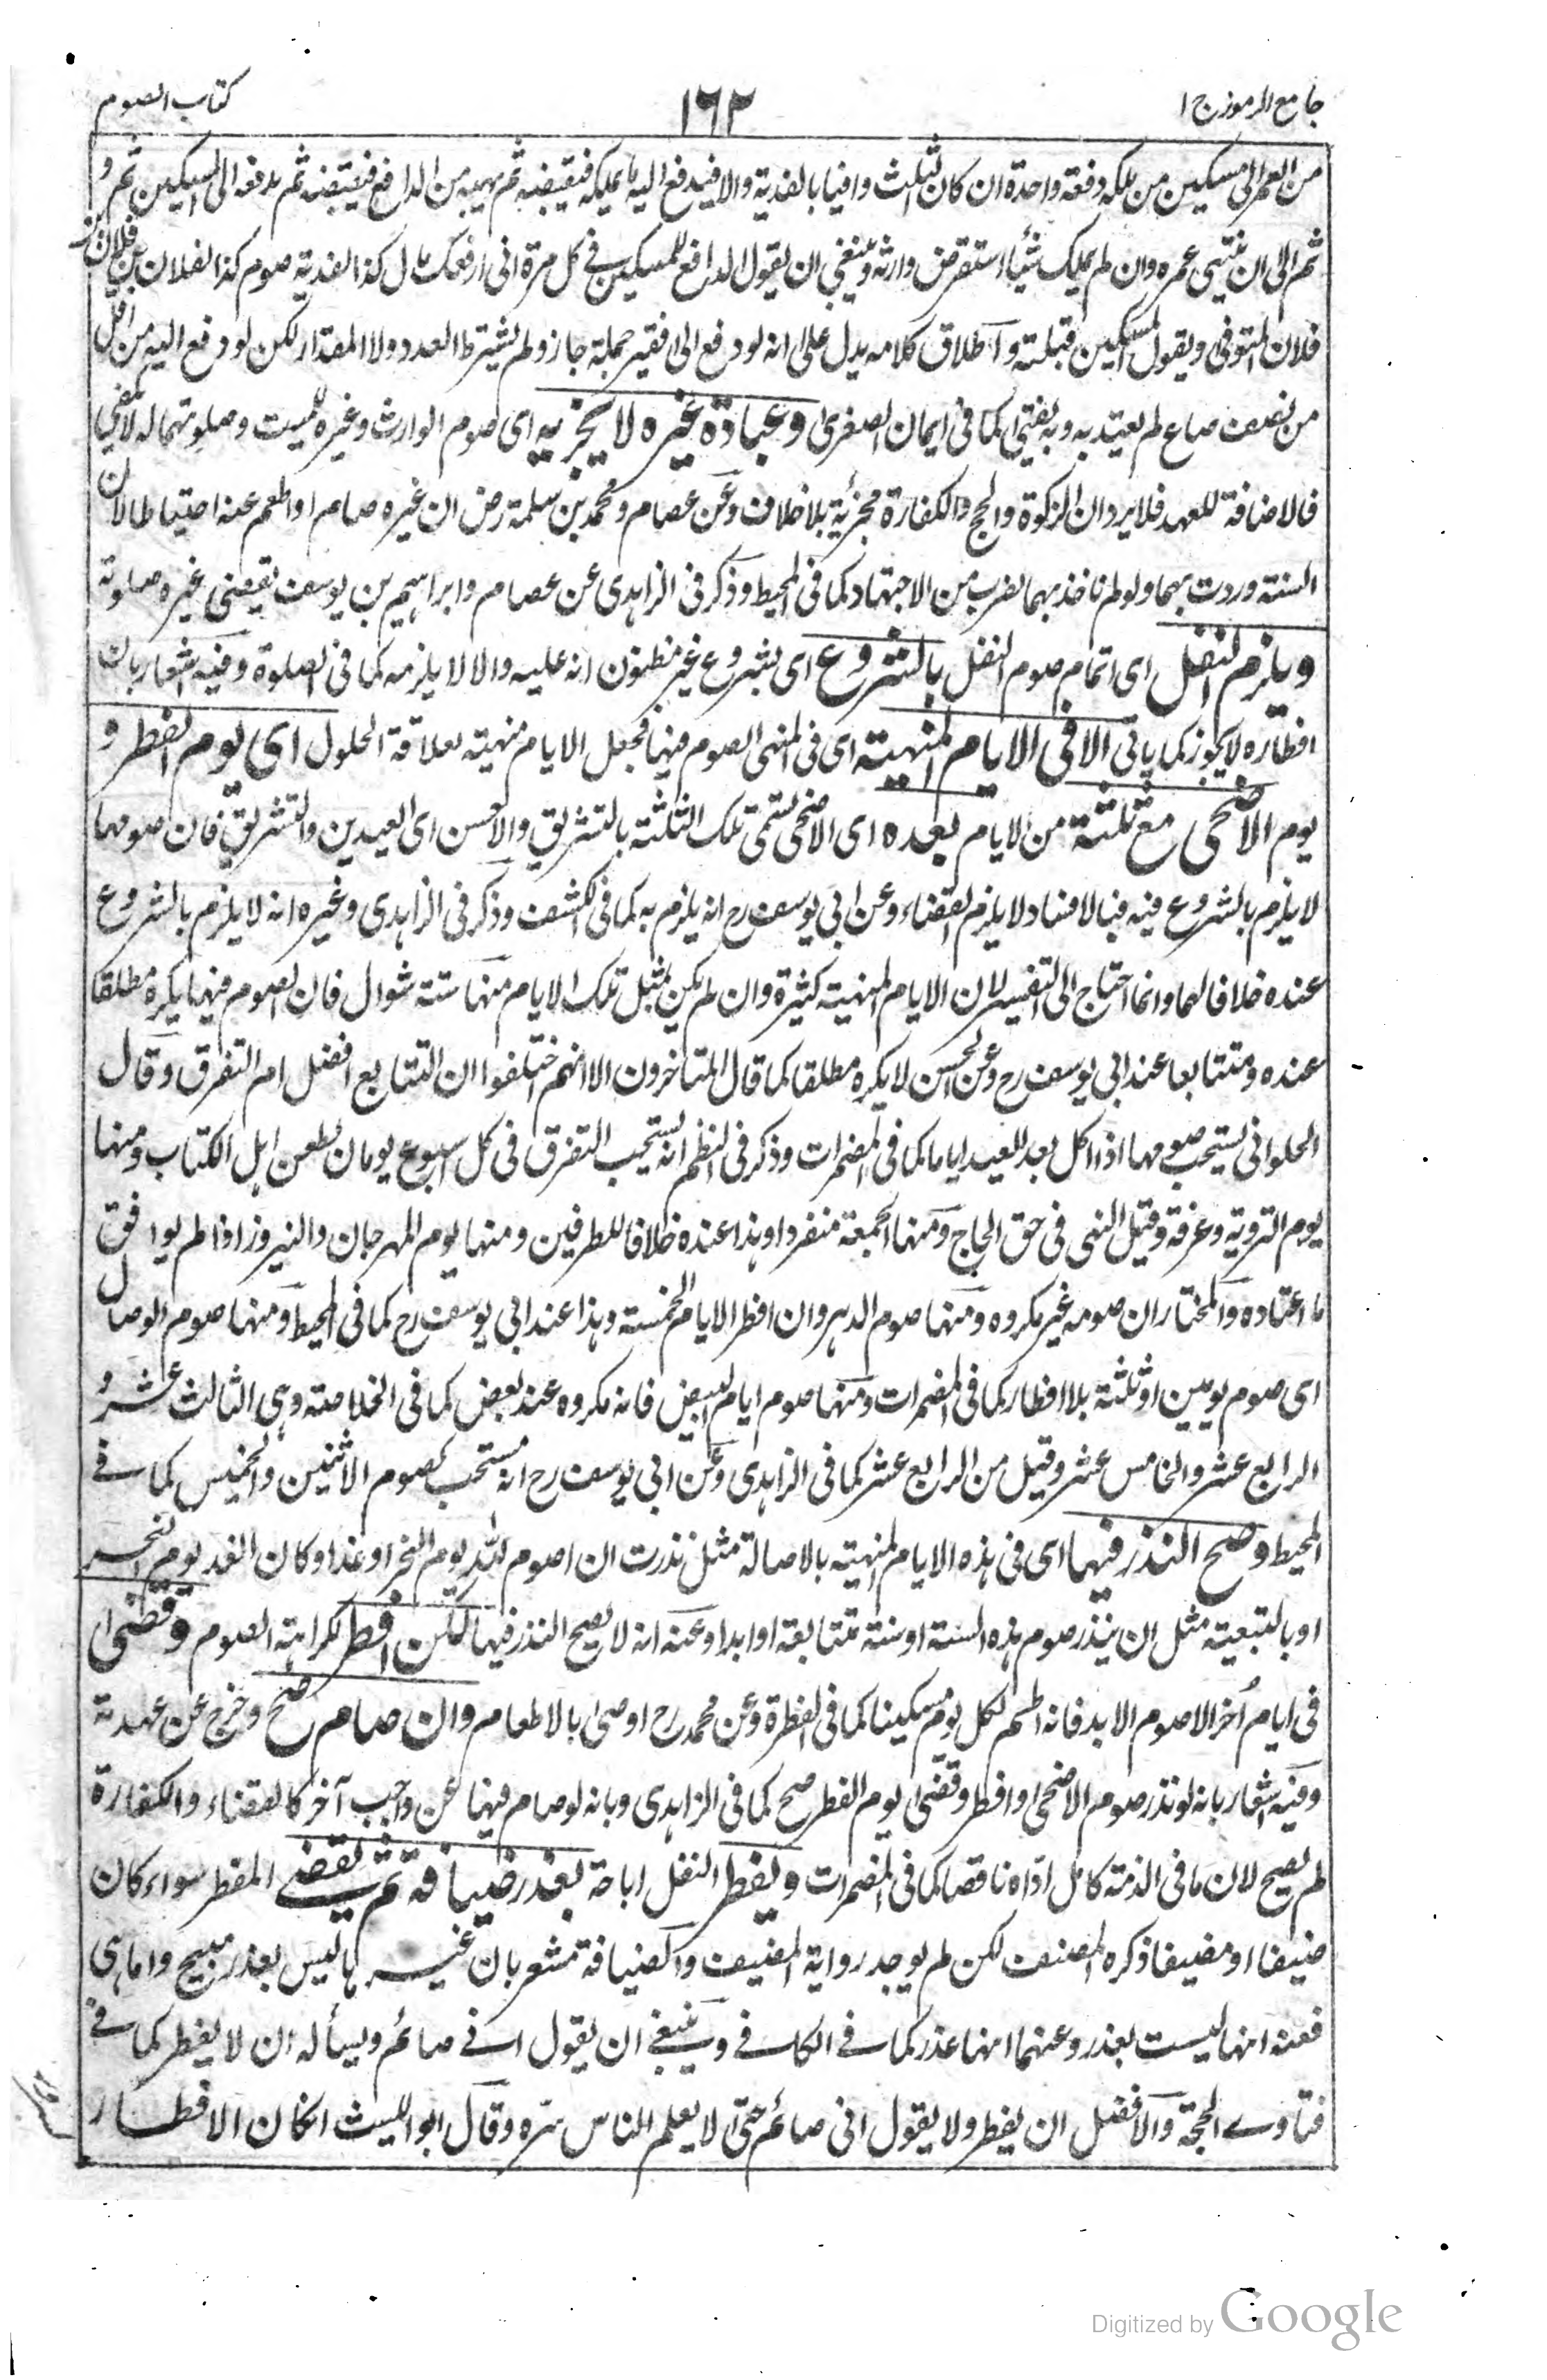 جامع الرموز ج ١
١٦٢
كتاب الصوم
من العمر الى مسكين من ملكه دفعة واحدة ان كان الثلث وافيا بالفدية والا فيدفع اليه ما يملكه فيقبضه ثم يهبه من الدافع فيقبضه ثم يدفعه الى المسكين ثم و
ثم الى ان ينتهي عمره وان لم يملك شيئا استقرض وارثه وينبغي ان يقول الدافع للمسكين في كل مرة اني ادفعك مال كذا لفدية صوم كذا لفلان بن فلان بن
فلان المتوفى ويقول المسكين قبلته واطلاق كلامه يدل على انه لو دفع الى فقير جملة جاز ولم يشترط العدد ولا المقدار لكن لو دفع اليه من اقل
من نصف صاع لم يعتد به وبه يفتى كما في ايمان الصغرى وعبادة غيره لا يجزيه اى صوم الوارث وغيره للميت وصلوتهما له لا يكفي
فالاضافة للعهد فلا يرد ان الزكوة والحج والكفارة مجزئة بلا خلاف وعن عصام ومحمد بن سلمة رض ان غيره صام او اطعم عنه احتياطا لان
السنة وردت بهما ولو لم ناخذ بهما لضرب من الاجتهاد كما في المحيط وذكر في الزاهدي عن عصام وابراهيم بن يوسف يقضى غيره صلوته
ويلزم النفل اى اتمام صوم النفل بالشروع اى بشروع غير مظنون انه عليه والا لا يلزمه كما في الصلوة وفيه اشعار بان
افطاره لا يجوز كما ياتي الا في الايام المنهية اى في المنهى الصوم فيها فجعل الايام منهية بعلاقة الحلول اى يوم الفطر و
يوم الاضحى مع ثلثة من الايام بعده اى الاضحى تسمى تلك الثلثة بالتشريق والاحسن اى العيدين والتشريق فان صومها
لا يلزم بالشروع فيه فبالافساد لا يلزم القضاء وعن ابي يوسف رح انه يلزم به كما في الكشف وذكر في الزاهدي وغيره انه لا يلزم بالشروع
عنده خلافا لهما وانما احتاج الى التفسير لان الايام المنهية كثيرة وان لم يكن مثل تلك الايام منها ستة شوال فان الصوم فيها يكره مطلقا
عنده ومتتابعا عند ابي يوسف رح وعن الحسن لا يكره مطلقا كما قال المتاخرون الا انهم اختلفوا ان التتابع افضل ام التفرق وقال
الحلواني يستحب صومها اذا اكل بعد العيد اياما كما في المضمرات وذكر في النظم انه يستحب التفرق في كل اسبوع يومان لطعن اهل الكتاب ومنها
يوم التروية وعرفة وقيل النهى في حق الحاج ومنها الجمعة منفردا وهذا عنده خلافا للطرفين ومنها يوم المهرجان والنيروز اذا لم يوافق
ما اعتاده والمختار ان صومه غير مكروه ومنها صوم الدهر وان افطر الايام الخمسة وهذا عند ابي يوسف رح كما في المحيط ومنها صوم الوصال
اى صوم يومين او ثلثة بلا افطار كما في المضمرات ومنها صوم ايام البيض فانه مكروه عند بعض كما في الخلاصة وهى الثالث عشر و
الرابع عشر والخامس عشر وقيل من الرابع عشر كما في الزاهدي وعن ابي يوسف رح انه مستحب كصوم الاثنين والخميس كما في
المحيط وصح النذر فيها اى في هذه الايام المنهية بالاصالة مثل نذرت ان اصوم لله يوم النحر او غدا وكان الغد يوم النحر
او بالتبعية مثل ان ينذر صوم هذه السنة او سنة متتابعة او ابدا وعنه انه لا يصح النذر فيها لكن افطر لكراهة الصوم وقضى ا
في ايام أخر الا صوم الابد فانه اطعم لكل يوم مسكينا كما في الفطرة وعن محمد رح اوصى بالاطعام وان صام صح وخرج عن عهدته
وفيه اشعار بانه لو نذر صوم الاضحى او افطر وقضى يوم الفطر صح كما في الزاهدي وبانه لو صام فيها عن واجب آخر كالقضاء والكفارة
لم يصح لان ما في الذمة كامل اداه ناقصا كما في المضمرات ويفطر النفل اباحة بعذر ضيافة ثم يقضى المفطر سواء كان
ضيفا او مضيفا ذكره المصنف لكن لم يوجد رواية المضيف والضيافة مشعر بان غيرها ليس بعذر مبيح واما هى
فعنه انها ليست بعذر وعنهما انها عذر كما في الكافي وينبغي ان يقول اني صائم ويسأله ان لا يفطر كما في
فتاوى الحجة والافضل ان يفطر ولا يقول اني صائم حتى لا يعلم الناس سره وقال ابو الليث ان كان الافطار
Digitized by Google